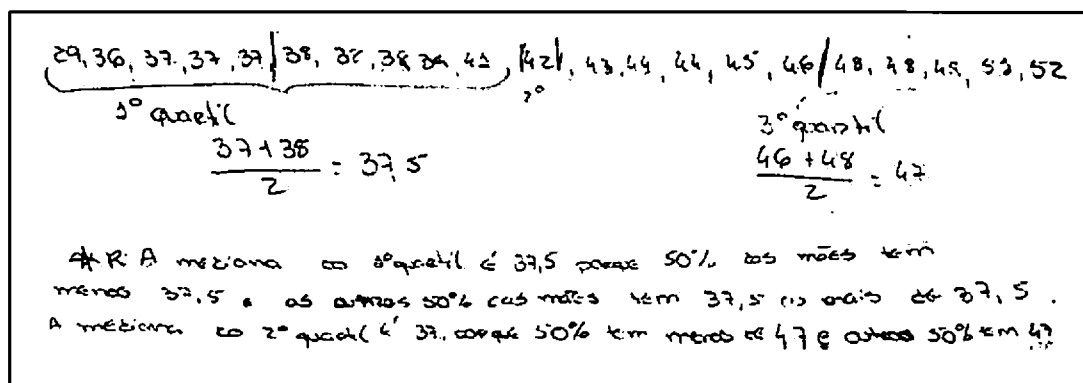 29, 36, 37, 37, 37 | 38, 38, 38, 39, 41, |42|, 43, 44, 44, 45, 46 / 48, 48, 49, 51, 52
2º
1º quartil 3º quartil
37+38 / 2 = 37,5 46+48 / 2 = 47
R: A mediana do 1º quartil é 37,5 porque 50% das mães tem
menos 37,5 e as outras 50% das mães tem 37,5 ou mais de 37,5.
A mediana do 2º quartil é 37, porque 50% tem menos de 47 e outros 50% tem 47